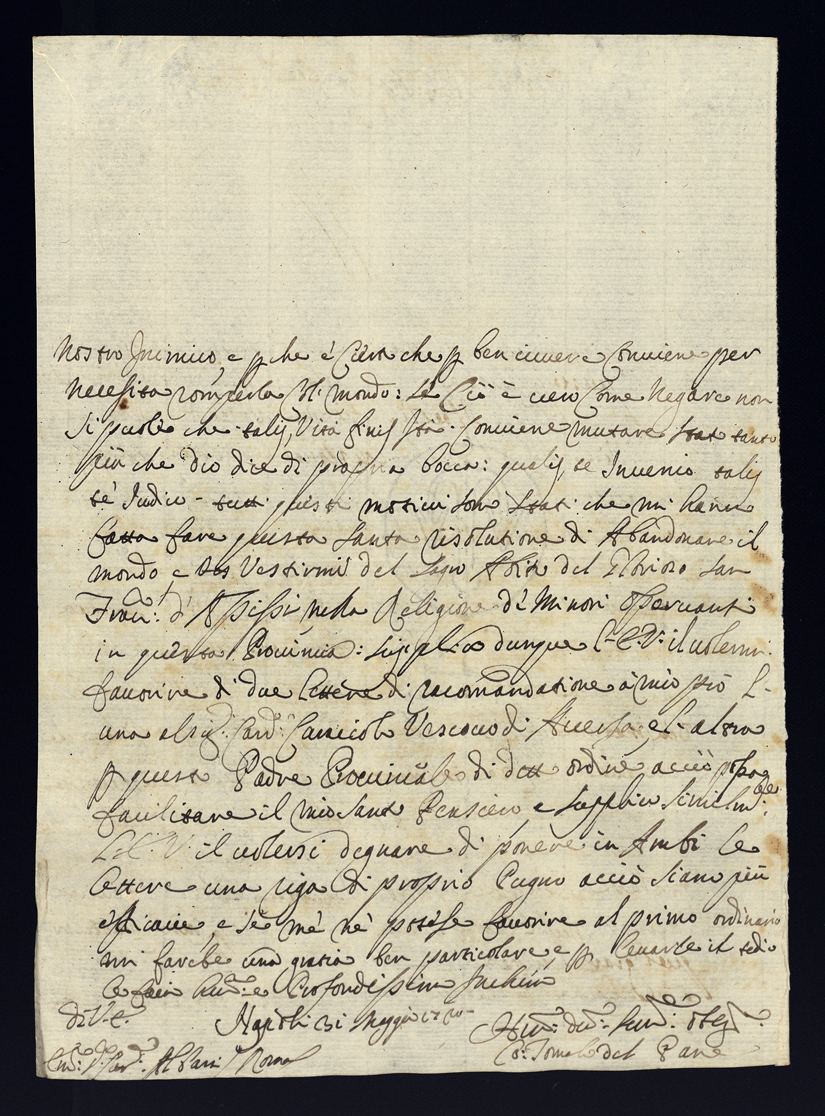 nostro Inimico, e p che è Certo che p ben vivere Conviene per
necessita romperla Col mondo: se Ciò è vero Come Negare non
si puole che talis Vita finis Ita. Conviene mutare stato tanto
più che dio dice di propria bocca: qualis te Invenio talis
te Iudico - tutti questi motivi son stati che mi hanno
fatto fare questa santa risolutione di Abandonare il
mondo e Vestirmi del sagro Abito del Glorioso san
Fran: d'Assisi nella Religione de Minori osservanti
in questa Provincia: supplico dunque l'E.V: il volermi
favorire di due lettere di racomandatione à mio prò l'
una al Sig: Card: Caracciolo Vescovo di Aversa, e l'altra
p questo Padre Provinciale di detto ordine acciò possa
facilitare il mio santo Pensiero, e supplico similm:te
L'E.V. il volersi degnare di ponere in Ambi le
lettere una riga di proprio Pugno acciò siano più
efficacie, e se me ne potesse favorire al primo ordinario
mi farebe una gratia ben particolare, e p levarle il tedio
le Profondissimo Inchino
Di V.E.
Napoli 31 Maggio
Hum: dev: Ser: obl:
Tomaso del Pane
Em: Sig: Card: Albani Roma